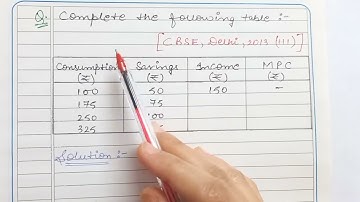 Q. Complete the following table :-
[CBSE, Delhi, 2013 (III)]
Consumption (₹) Savings (₹) Income (₹) MPC (₹)
100 50 150 -
175 75
250 100
325
Solution :-